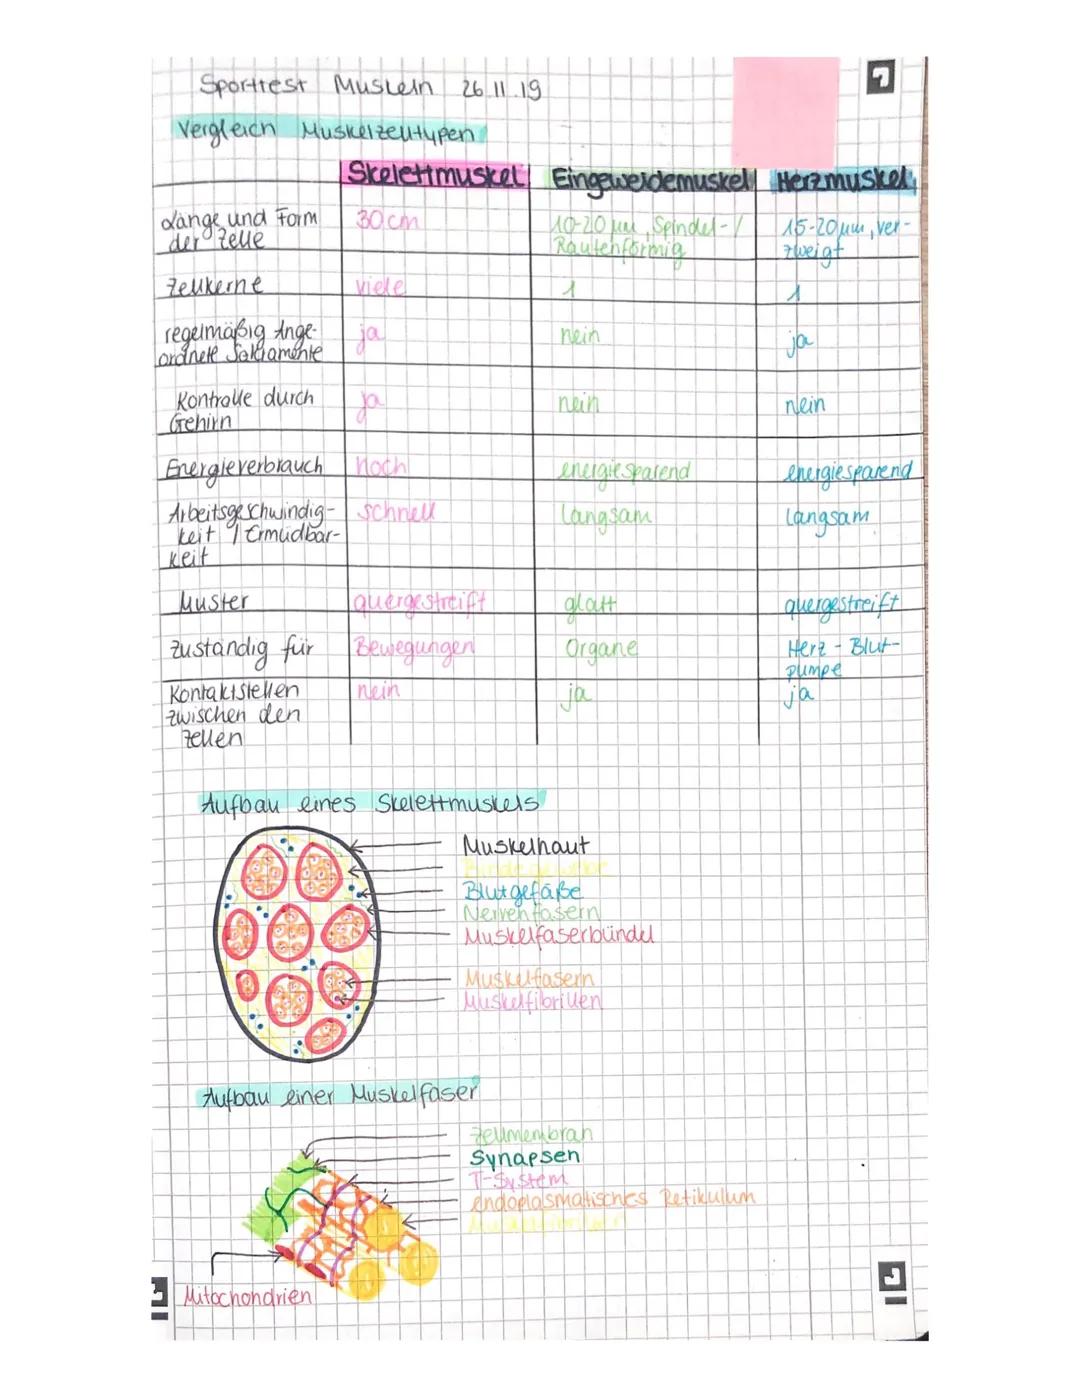 Sporttest Muskeln 26.11.19
Vergleich Muskelzelltypen
Skelettmuskel Eingeweidemuskel Herzmuskel
Länge und Form der Zelle 30cm 10-20 µm, Spindel-/ Rautenförmig 15-20µm, ver-zweigt
Zellkerne viele 1 1
regelmäßig Ange-
ordnete ja nein ja
Kontrolle durch
Gehirn ja nein nein
Energieverbrauch hoch energiesparend energiesparend
Arbeitsgeschwindig- schnell langsam langsam
keit / Ermüdbar-
keit
Muster quergestreift glatt quergestreift
zuständig für Bewegungen Organe Herz - Blut-
pumpe
Kontaktstellen nein ja ja
zwischen den
Zellen
Aufbau eines Skelettmuskels
Muskelhaut
Bindegewebe
Blutgefäße
Nervenfasern
Muskelfaserbündel
Muskelfasern
Muskelfibrillen
Aufbau einer Muskelfaser
Zellmembran
Synapsen
T-System
endoplasmatisches Retikulum
Mitochondrien